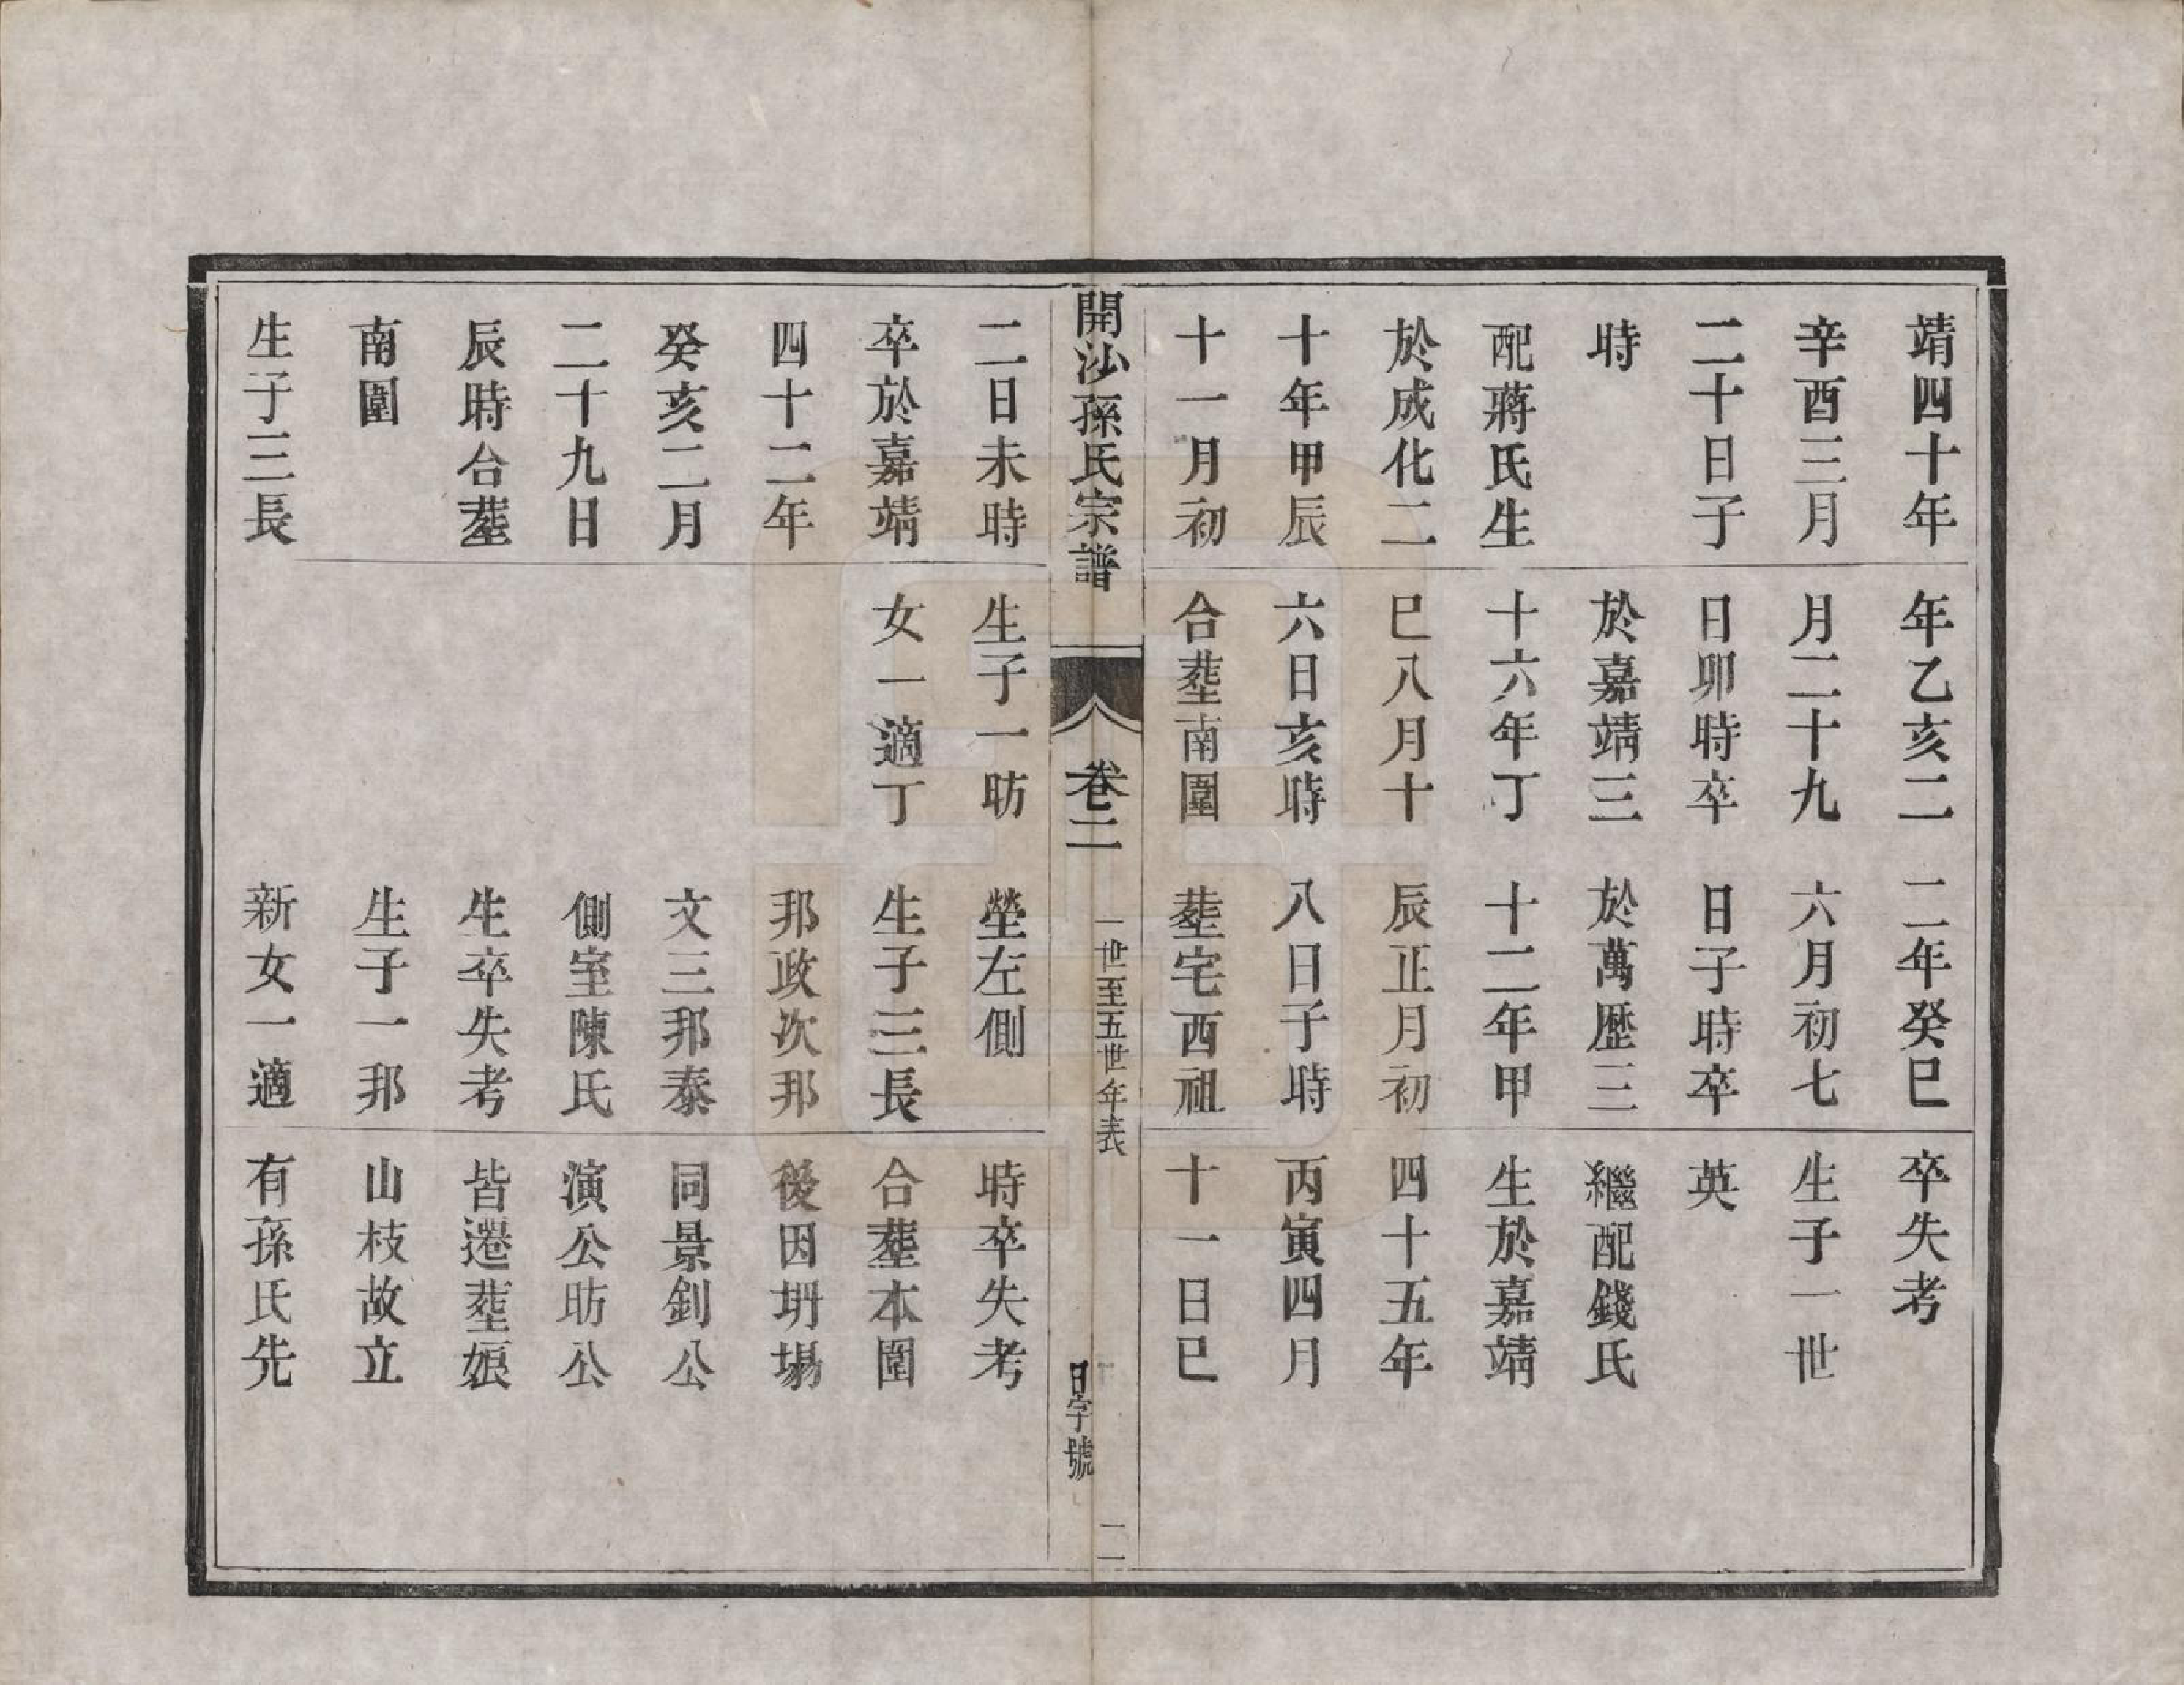 靖四十年
辛酉三月
二十日子
時
配蔣氏生
於成化二
十年甲辰
十一月初
年乙亥二
月二十九
日卯時卒
於嘉靖三
十六年丁
巳八月十
六日亥時
合塟南圍
二年癸巳
六月初七
日子時卒
於萬歷三
十二年甲
辰正月初
八日子時
塟宅西祖
卒失考
生子一世
英
繼配錢氏
生於嘉靖
四十五年
丙寅四月
十一日巳
開沙孫氏宗譜
卷二
一世至五世年表
日字號
二
二日未時
卒於嘉靖
四十二年
癸亥二月
二十九日
辰時台塟
南圍
生子三長
生子一昉
女一適丁
塋左側
生子三長
邦政次邦
文三邦泰
側室陳氏
生卒失考
生子一邦
新女一適
時卒失考
合塟本圍
後因坍塲
同景釗公
演公昉公
皆遷塟娘
山枝故立
有孫氏先